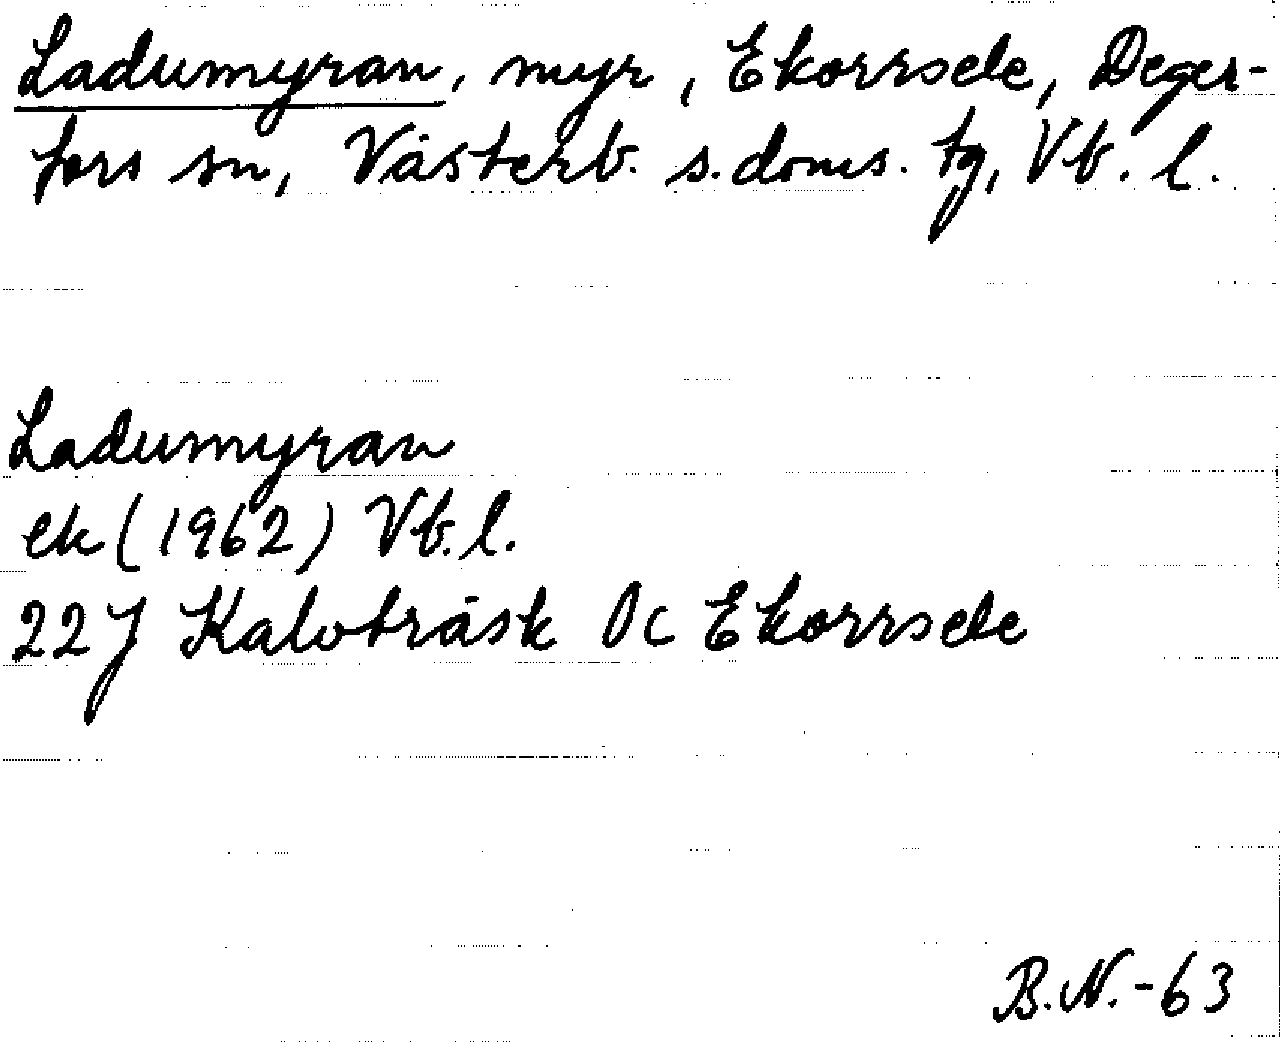 Ladumyran, myr, Ekorrsele, Deger-
fors sn, Västerb. s. doms. tg, Vb. l.
Ladumyran
ek (1962) Vb. l.
22 J Kalvträsk 0c Ekorrsele
B.N.-63